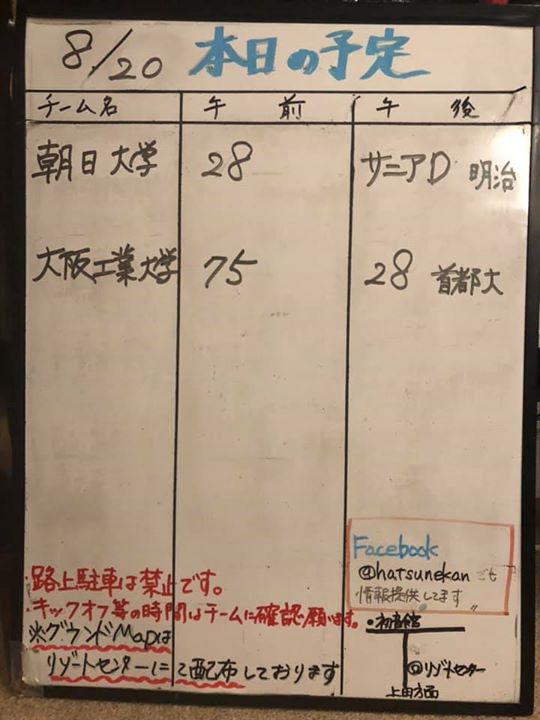 8/20 本日の予定
チーム名 午前 午後
朝日大学 28 サニアD 明治
大阪工業大学 75 28 首都大
Facebook
@hatsunekanでも
情報提供してます
・路上駐車は禁止です。
・キックオフ等の時間はチームに確認願います。
※グラウンドMapは
リゾートセンターにて配布しております
・初音館
◎リゾートセンター
上田方面